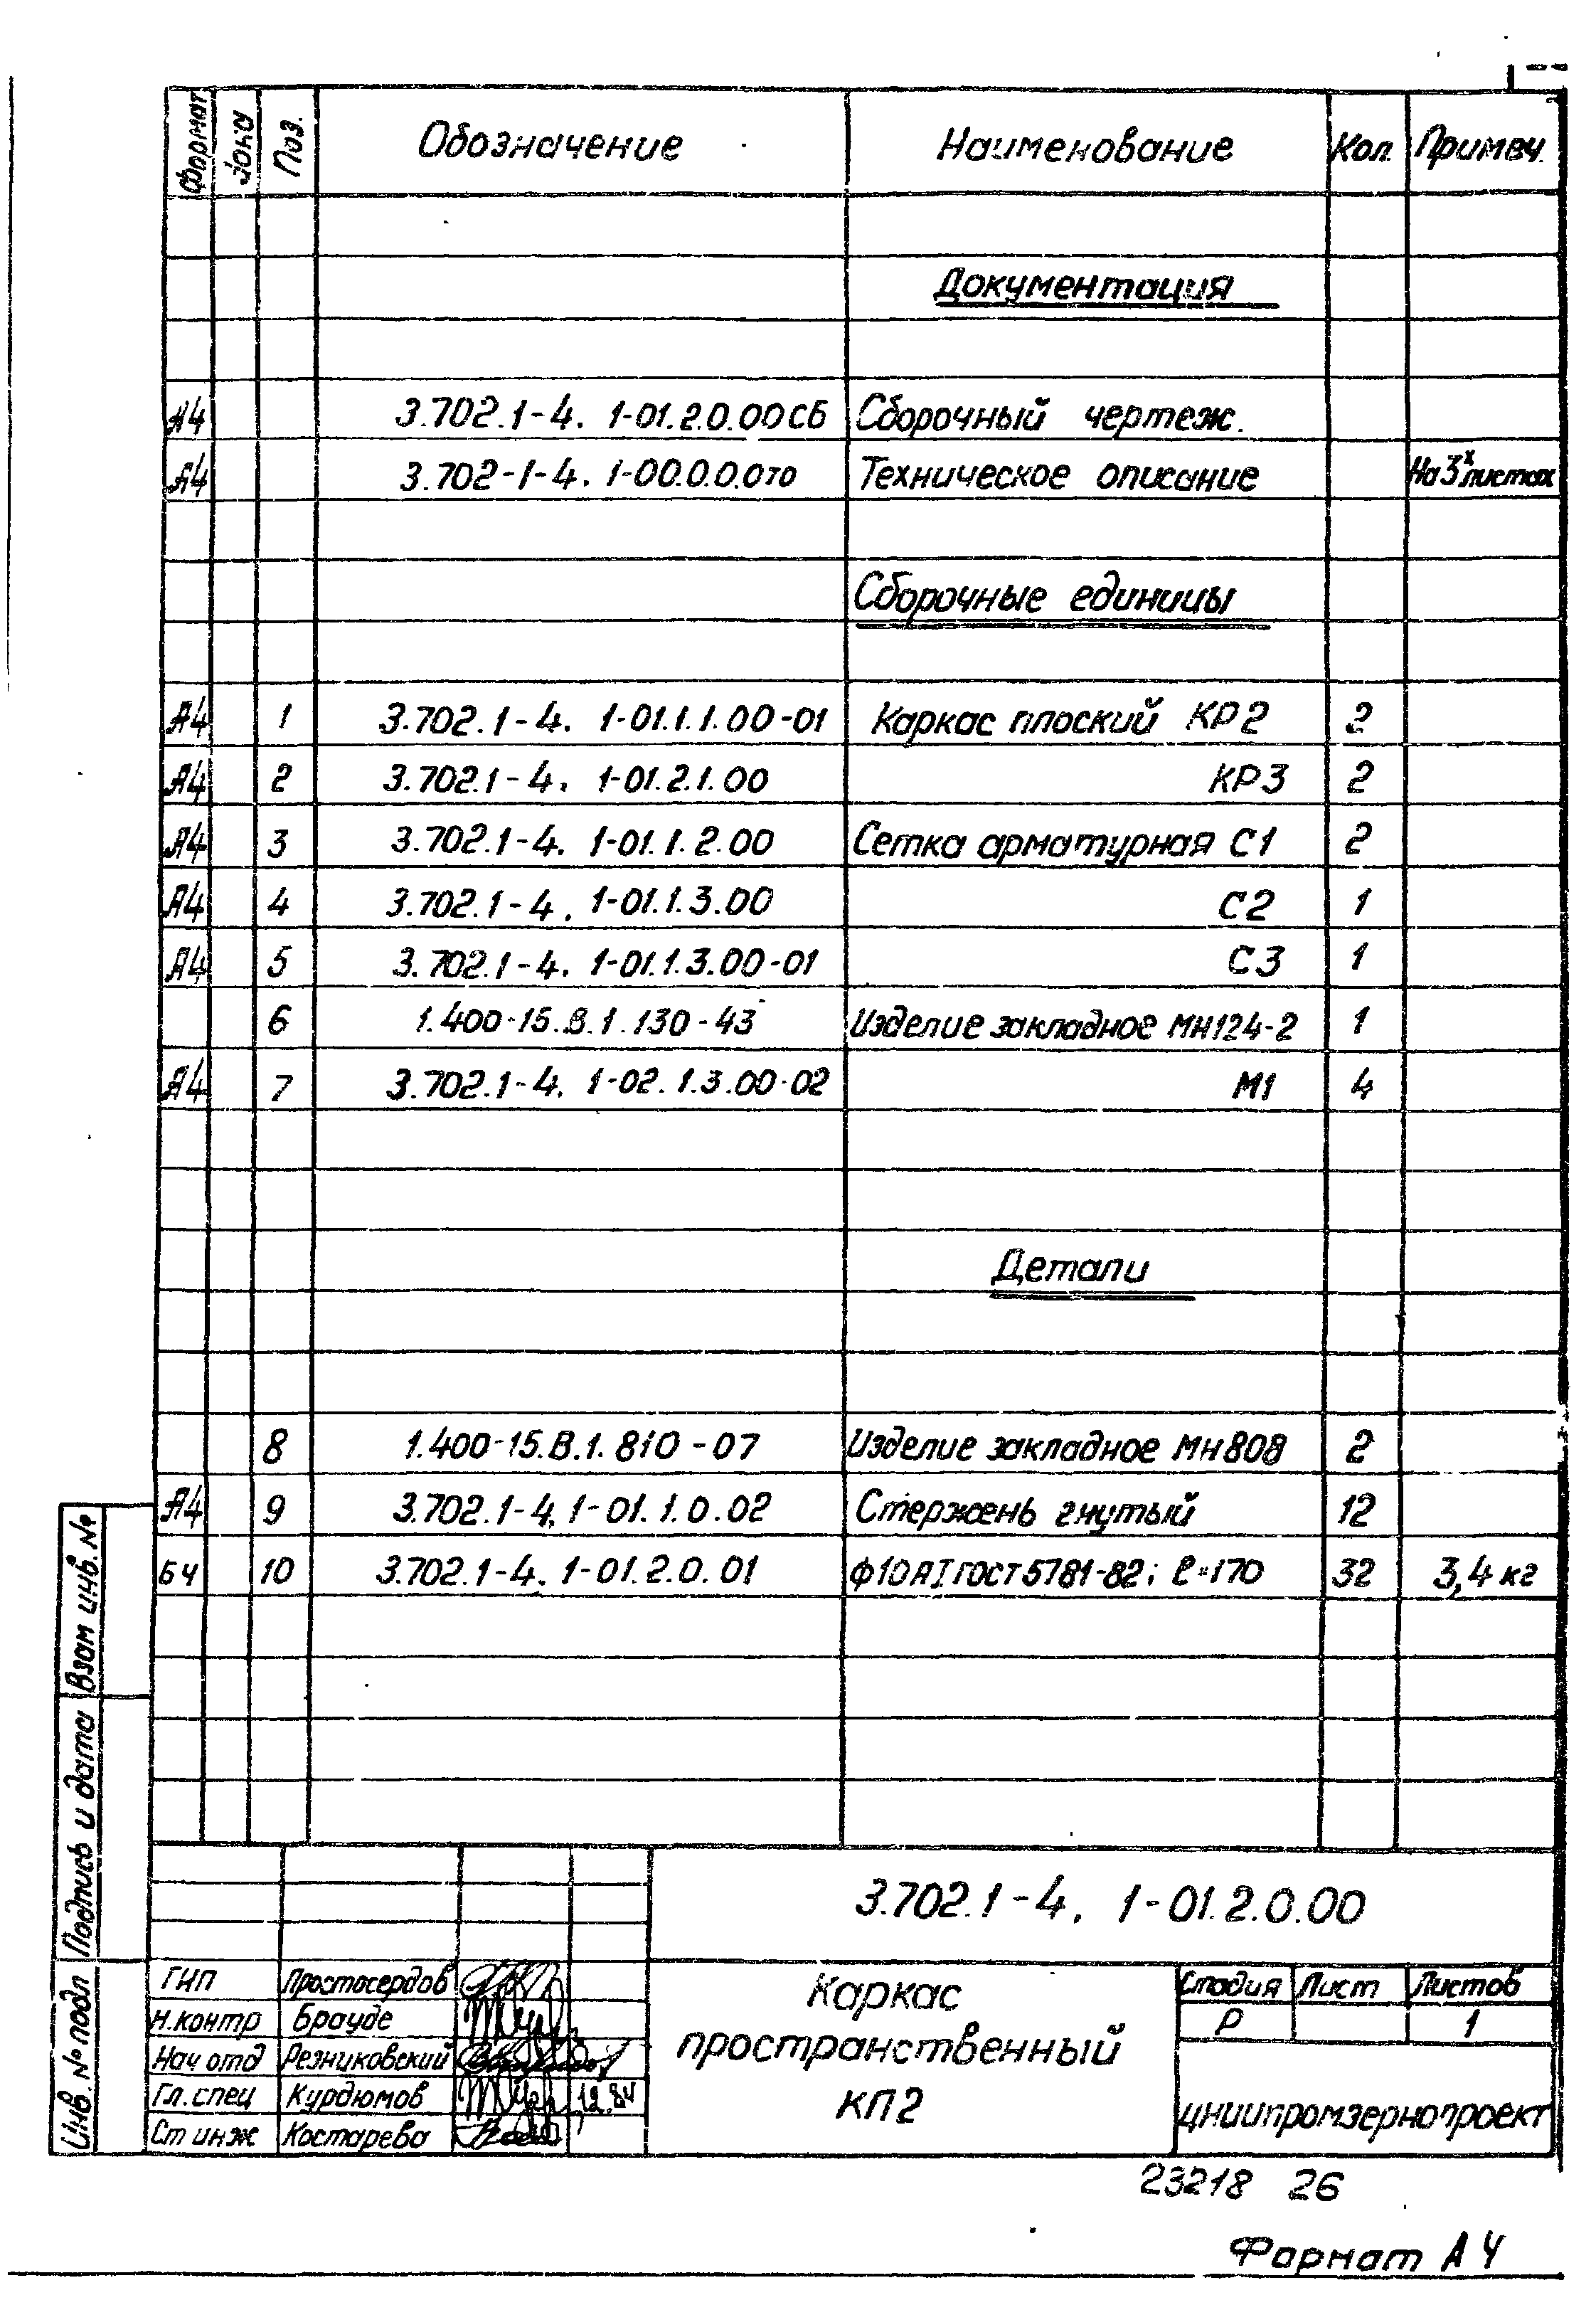 Формат Зона Поз. Обозначение Наименование Кол. Примеч.
Документация
А4 3.702.1-4. 1-01.2.0.00СБ Сборочный чертеж.
А4 3.702-1-4. 1-00.0.0.0ТО Техническое описание На 3х листах
Сборочные единицы
А4 1 3.702.1-4. 1-01.1.1.00-01 Каркас плоский КР2 2
А4 2 3.702.1-4. 1-01.2.1.00 КР3 2
А4 3 3.702.1-4. 1-01.1.2.00 Сетка арматурная С1 2
А4 4 3.702.1-4. 1-01.1.3.00 С2 1
А4 5 3.702.1-4. 1-01.1.3.00-01 С3 1
6 1.400-15.В.1.130-43 Изделие закладное МН124-2 1
А4 7 3.702.1-4. 1-02.1.3.00-02 М1 4
Детали
8 1.400-15.В.1.810-07 Изделие закладное МН808 2
А4 9 3.702.1-4. 1-01.1.0.02 Стержень гнутый 12
БЧ 10 3.702.1-4. 1-01.2.0.01 ф10АI ГОСТ 5781-82; ℓ=170 32 3,4 кг
Взам инв. №
Подпись и дата
Инв. № подл
3.702.1-4. 1-01.2.0.00
ГИП Простосердов
Н.контр Брауде
Нач отд Резниковский
Гл.спец Курдюмов 12.84
Ст инж Костарева
Каркас
пространственный
КП2
Стадия Лист Листов
Р 1
ЦНИИПРОМЗЕРНОПРОЕКТ
23218 26
Формат А4